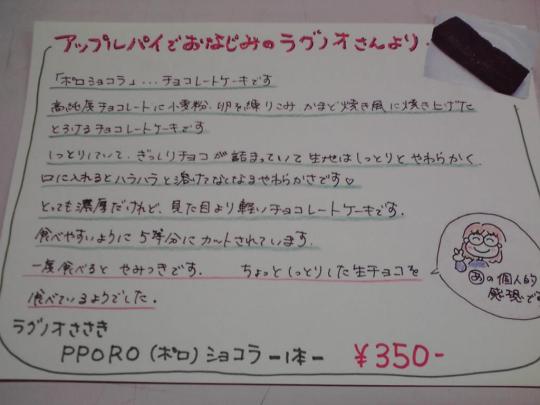 アップルパイでおなじみのラグノオさんより・
「ポロショコラ」…チョコレートケーキです
高純度チョコレートに小麦粉、卵を練りこみ かまど焼き風に焼き上げた
とろけるチョコレートケーキです
しっとりしていて、ぎっしりチョコが詰まっていて 生地はしっとりとやわらかく
口に入れるとハラハラと溶けてなくなるやわらかさです♡
とっても濃厚だけれど、見た目より軽いチョコレートケーキです。
食べやすいように 5等分にカットされています。
一度食べると やみつきです。 ちょっとしっとりした生チョコを
食べているようでした。
あの個人的
感想です
ラグノオささき
PPORO (ポロ) ショコラ ー1本ー ¥350-